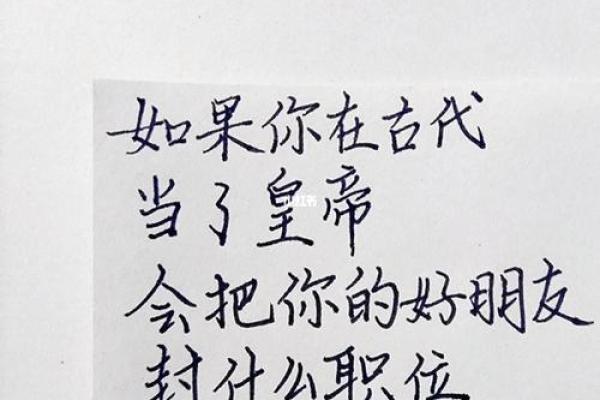 如果你在古代
当了皇帝
会把你的好朋友
封什么职位